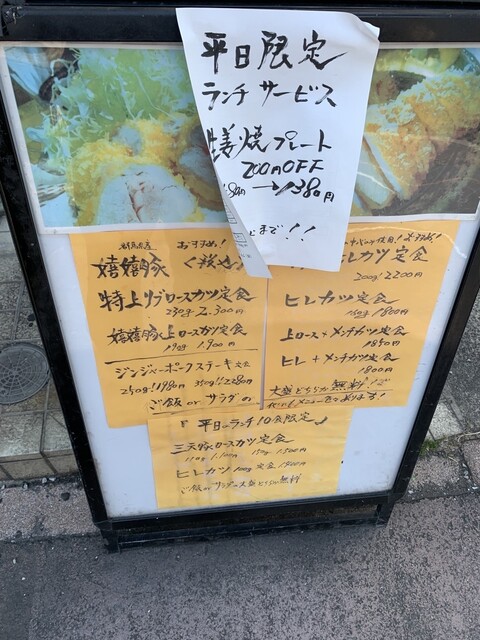 平日限定
ランチサービス
生姜焼プレート
200円OFF
1380円
まで!!
おすすめ!
嬉嬉豚
特上リブロースカツ定食
230g 2.300円
嬉嬉豚上ロースカツ定食
190g 1.900円
ジンジャーポークステーキ定食
250g!1980円 350g!!2280円
ご飯 or サラダの
200g! 2200円
ヒレカツ定食
150g 1800円
上ロース+メンチカツ定食
1850円
ヒレ+メンチカツ定食
1800円
大盛どちらか無料!で
『平日ランチ10食限定』
三元豚ロースカツ定食
110g 1.100円 150g 1.300円
ヒレカツ 100g 定食
ご飯 or サラダの大盛どちらか無料